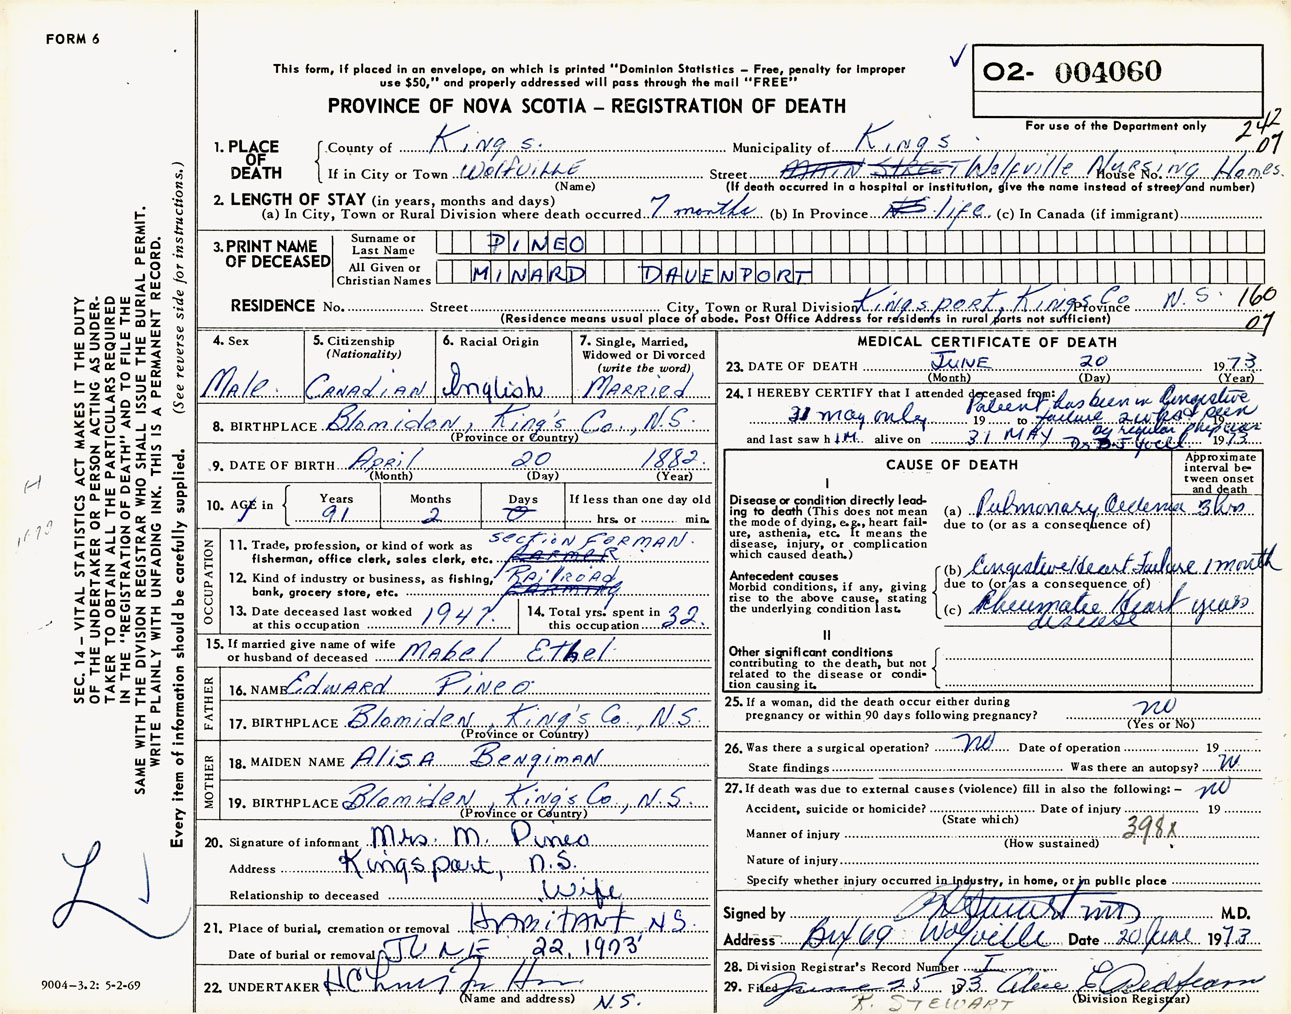 FORM 6
This form, if placed in an envelope, on which is printed "Dominion Statistics – Free, penalty for improper
use $50," and properly addressed will pass through the mail "FREE"
PROVINCE OF NOVA SCOTIA – REGISTRATION OF DEATH
✓ 02- 004060
For use of the Department only
242
07
1. PLACE OF DEATH
County of Kings. Municipality of Kings
If in City or Town Wolfville Street MAIN STREET Wolfville Nursing Homes. House No.
(Name) (If death occurred in a hospital or institution, give the name instead of street and number)
2. LENGTH OF STAY (in years, months and days)
(a) In City, Town or Rural Division where death occurred 7 months (b) In Province life (c) In Canada (if immigrant)
3. PRINT NAME OF DECEASED
Surname or Last Name PINEO
All Given or Christian Names MINARD DAVENPORT
RESIDENCE No. Street City, Town or Rural Division Kingsport, Kings Co Province N.S. 160
(Residence means usual place of abode. Post Office Address for residents in rural parts not sufficient) 07
4. Sex
Male
5. Citizenship
(Nationality)
Canadian
6. Racial Origin
English
7. Single, Married,
Widowed or Divorced
(write the word)
Married
8. BIRTHPLACE Blomidon, King's Co., N.S.
(Province or Country)
9. DATE OF BIRTH April 20 1882.
(Month) (Day) (Year)
10. AGE in Years Months Days If less than one day old
91 2 0 hrs. or min.
OCCUPATION
11. Trade, profession, or kind of work as section FORMAN.
fisherman, office clerk, sales clerk, etc. FARMER
12. Kind of industry or business, as fishing, Railroad
bank, grocery store, etc. FARMING
13. Date deceased last worked
at this occupation 1947.
14. Total yrs. spent in
this occupation 32.
15. If married give name of wife
or husband of deceased Mabel Ethel
FATHER
16. NAME Edward Pineo
17. BIRTHPLACE Blomiden, King's Co, N.S
(Province or Country)
MOTHER
18. MAIDEN NAME Alisa Bengiman
19. BIRTHPLACE Blomiden, King's Co., N.S.
(Province or Country)
20. Signature of informant Mrs. M. Pineo
Address Kingsport, N.S.
Relationship to deceased Wife
21. Place of burial, cremation or removal HABITANT N.S
Date of burial or removal JUNE 22, 1973
22. UNDERTAKER
(Name and address) N.S.
MEDICAL CERTIFICATE OF DEATH
23. DATE OF DEATH JUNE 20 1973
(Month) (Day) (Year)
24. I HEREBY CERTIFY that I attended deceased from:
31 may only 19 to Patient has been in Congestive
failure and has been
by regular physician
and last saw him alive on 31 MAY 1973
CAUSE OF DEATH
Approximate
interval be-
tween onset
and death
I
Disease or condition directly lead-
ing to death (This does not mean
the mode of dying, e.g., heart fail-
ure, asthenia, etc. It means the
disease, injury, or complication
which caused death.)
(a) Pulmonary Oedema 3 hrs
due to (or as a consequence of)
Antecedent causes
Morbid conditions, if any, giving
rise to the above cause, stating
the underlying condition last.
(b) Congestive Heart Failure 1 month
due to (or as a consequence of)
(c) Rheumatic Heart years
disease
II
Other significant conditions
contributing to the death, but not
related to the disease or condi-
tion causing it.
25. If a woman, did the death occur either during
pregnancy or within 90 days following pregnancy? no
(Yes or No)
26. Was there a surgical operation? no Date of operation 19
State findings Was there an autopsy? N
27. If death was due to external causes (violence) fill in also the following: – no
Accident, suicide or homicide? Date of injury 19
(State which)
Manner of injury 398x
(How sustained)
Nature of injury
Specify whether injury occurred in industry, in home, or in public place
Signed by M.D.
Address Box 69 Wolfville Date 20 June 1973
28. Division Registrar's Record Number
29. Filed June 25 1973
(Division Registrar)
K. STEWART
SEC. 14 – VITAL STATISTICS ACT MAKES IT THE DUTY
OF THE UNDERTAKER OR PERSON ACTING AS UNDER-
TAKER TO OBTAIN ALL THE PARTICULARS REQUIRED
IN THE "REGISTRATION OF DEATH" AND TO FILE THE
SAME WITH THE DIVISION REGISTRAR WHO SHALL ISSUE THE BURIAL PERMIT.
WRITE PLAINLY WITH UNFADING INK. THIS IS A PERMANENT RECORD.
Every item of information should be carefully supplied. (See reverse side for instructions.)
9004-3.2: 5-2-69